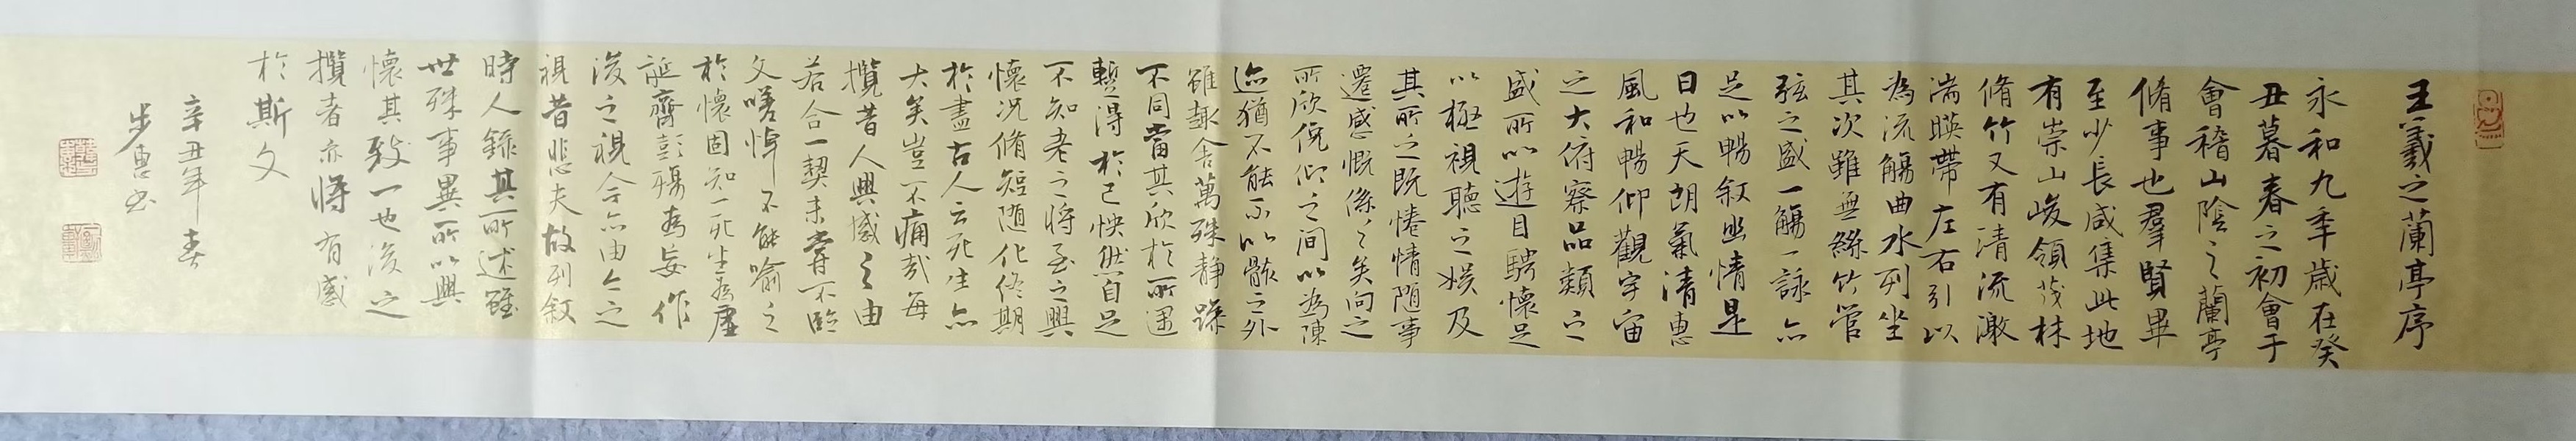 王羲之蘭亭序
永和九年歲在癸
丑暮春之初會于
會稽山陰之蘭亭
脩事也羣賢畢
至少長咸集此地
有崇山峻領茂林
脩竹又有清流激
湍暎帶左右引以
為流觴曲水列坐
其次雖無絲竹管
弦之盛一觴一詠亦
足以暢敘幽情是
日也天朗氣清惠
風和暢仰觀宇宙
之大俯察品類之
盛所以遊目騁懷足
以極視聽之娛及
其所之既惓情随事
遷感慨係之矣向之
所欣俛仰之間以為陳
迹猶不能不以骸之外
雖趣舍萬殊静躁
不同當其欣於所遇
暫得於己怏然自足
不知老之將至之興
懷況脩短随化終期
於盡古人云死生亦
大矣豈不痛哉每
攬昔人興感之由
若合一契未嘗不臨
文嗟悼不能喻之
於懷固知一死生為虛
誕齊彭殤為妄作
後之視今亦由今之
視昔悲夫故列敘
時人錄其所述雖
世殊事異所以興
懷其致一也後之
攬者亦將有感
於斯文
辛丑年春
步 书